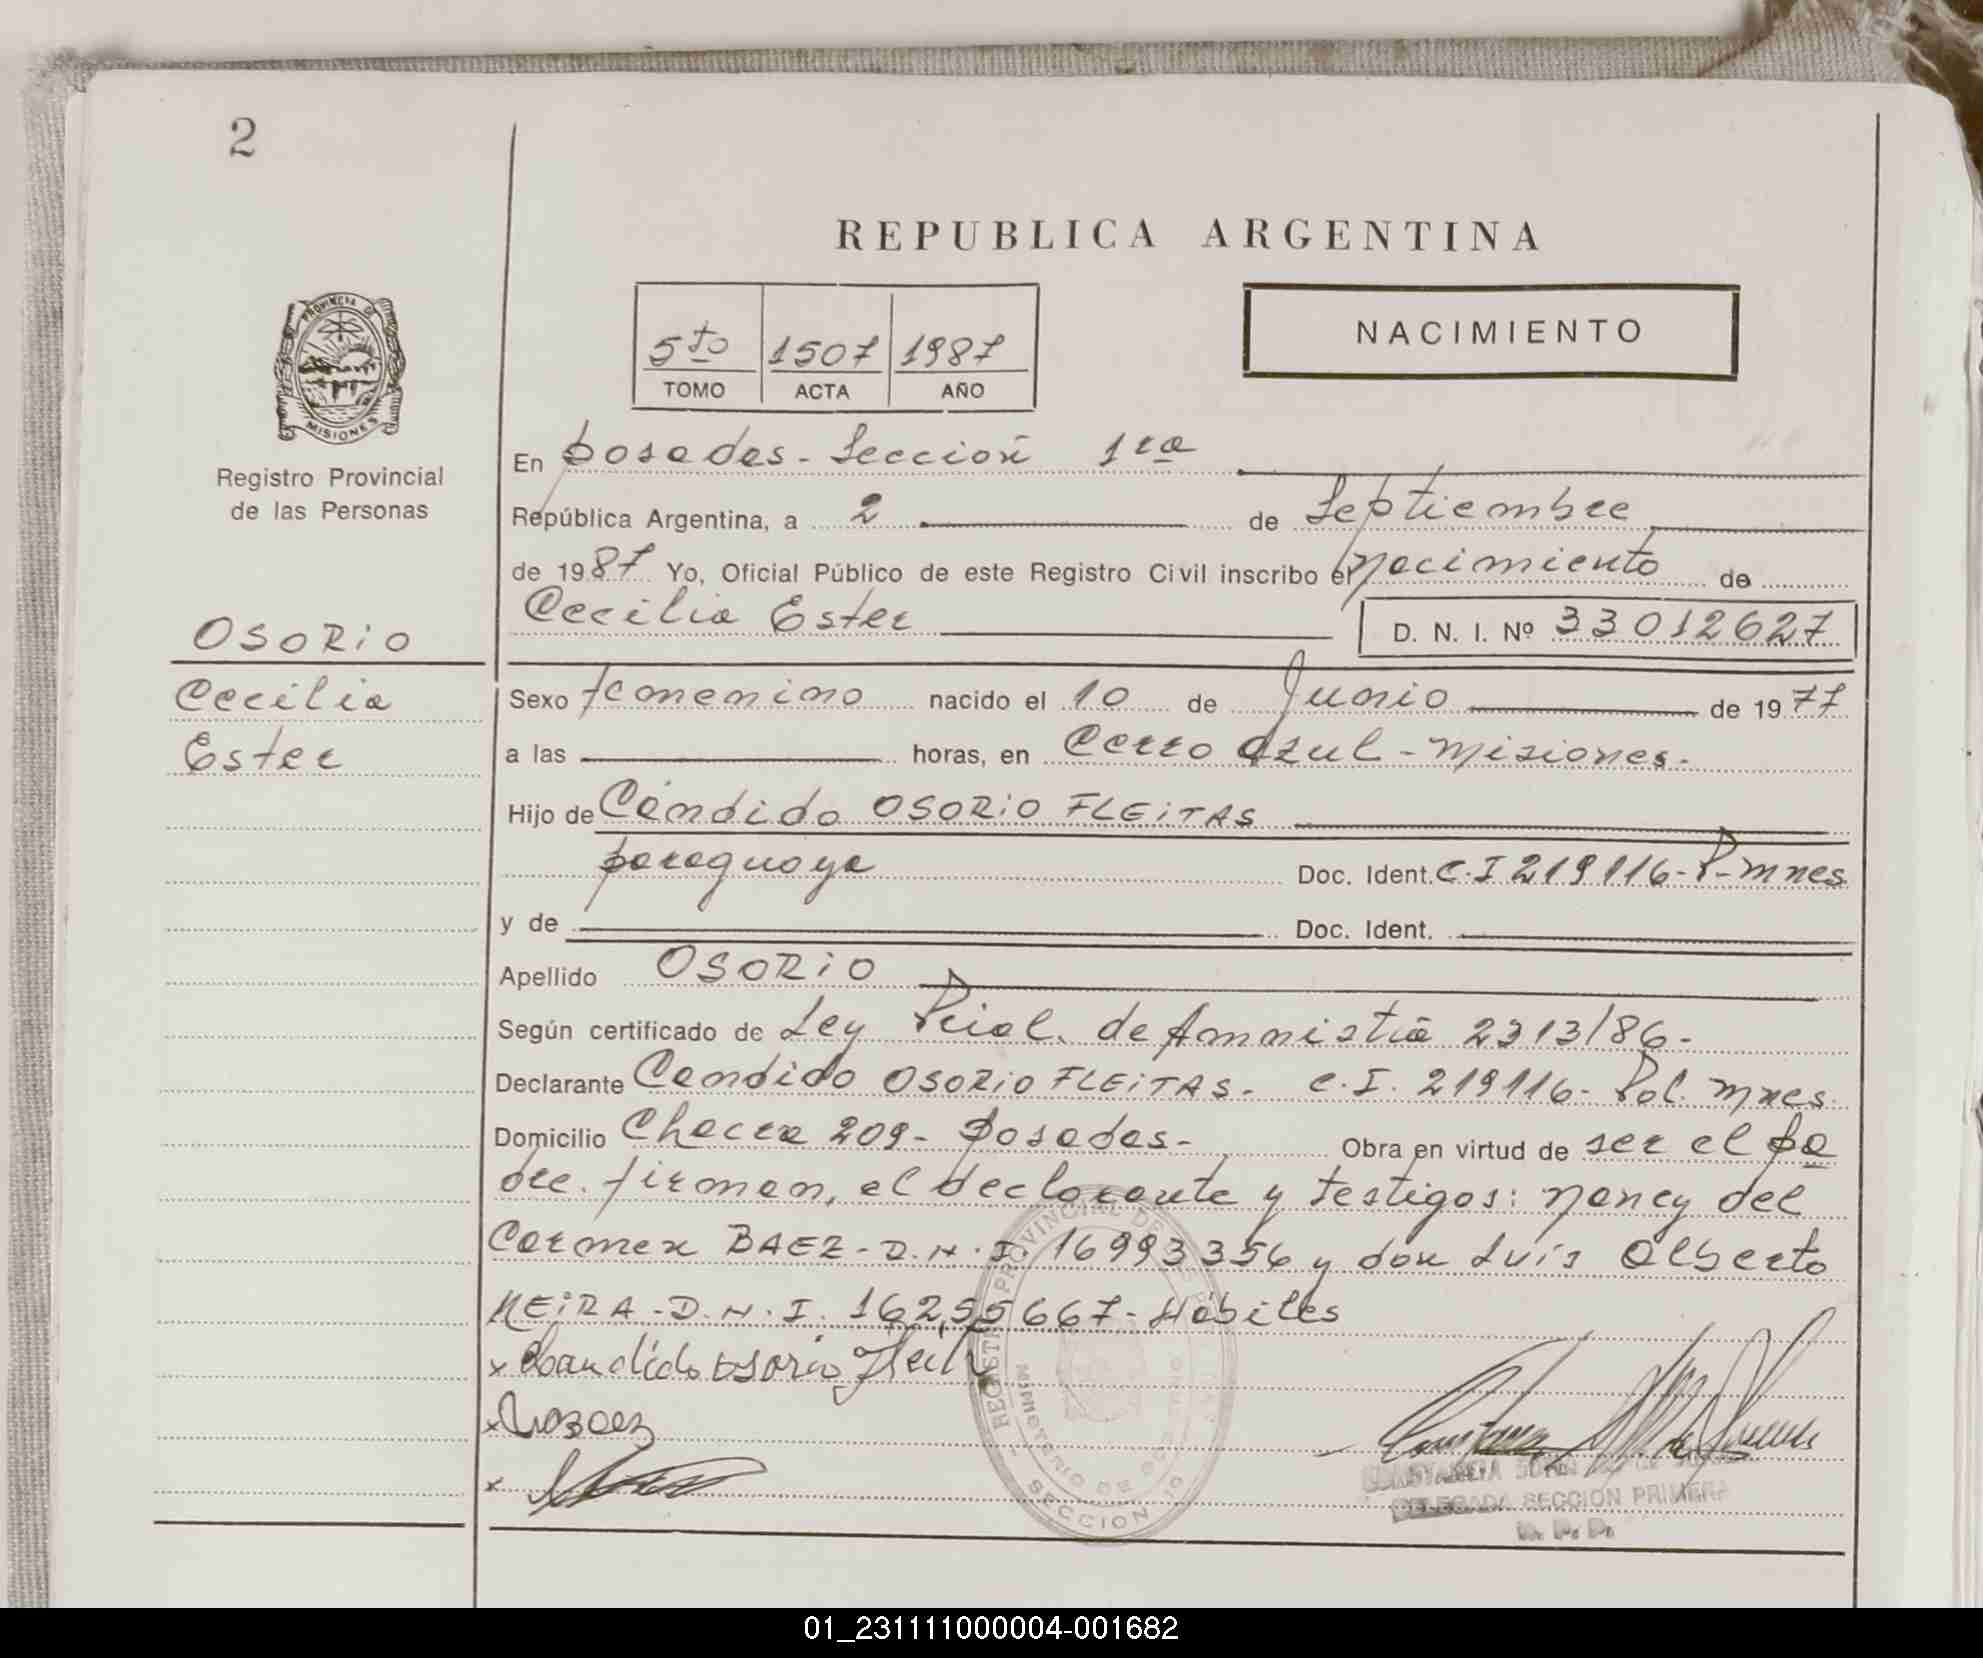 2
REPUBLICA ARGENTINA
5to 1507 1987
TOMO ACTA AÑO
NACIMIENTO
PROVINCIA D
MISIONES
Registro Provincial
de las Personas
En posadas - Sección 1ra
República Argentina, a 2 de Septiembre
de 1987 Yo, Oficial Público de este Registro Civil inscribo el nacimiento de
Cecilia Ester D. N. I. Nº 33012627
OSORIO
Cecilia
Ester
Sexo femenino nacido el 10 de Junio de 1977
a las horas, en Cerro Azul - Misiones.
Hijo de Cándido OSORIO FLEITAS
paraguaya Doc. Ident. C.I 219116 - P- mnes
y de Doc. Ident.
Apellido OSORIO
Según certificado de Ley Pcial. de Amnistia 2313/86 -
Declarante Candido OSORIO FLEITAS - C.I. 219116 - Pol. mnes.
Domicilio Chacra 209 - posadas - Obra en virtud de ser el pa
dre. firman, el declarante y testigos: nancy del
Carmen BAEZ - D.N.I. 16993356 y don Luis Alberto
NEIRA - D.N.I. 16255667 - Hábiles
x Candido osorio Fleit
x
x
REGISTRO PROVINCIAL DE LAS
MINISTERIO DE GOBIERNO
SECCION 10
DELEGADA SECCION PRIMERA
R. P. P.
01_231111000004-001682